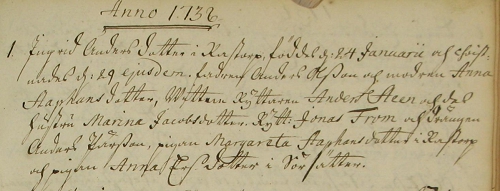 Anno 1732
1. Ingrid Anders dotter i Rastorp, föddes d: 24 Januarii och christ-
nades d: 29 ejusdem. fadren Anders Olsson och modren Anna
Staphans dotter, Wittnen Ryttaren Anders Steen och des
hustru Marina Jacobsdotter. Rytt: Jonas From och Drängen
Anders Pärsson, pigan Margareta Staphans dotter i Rastorp
och pigan Anna Ers Dotter i Sörsätter.